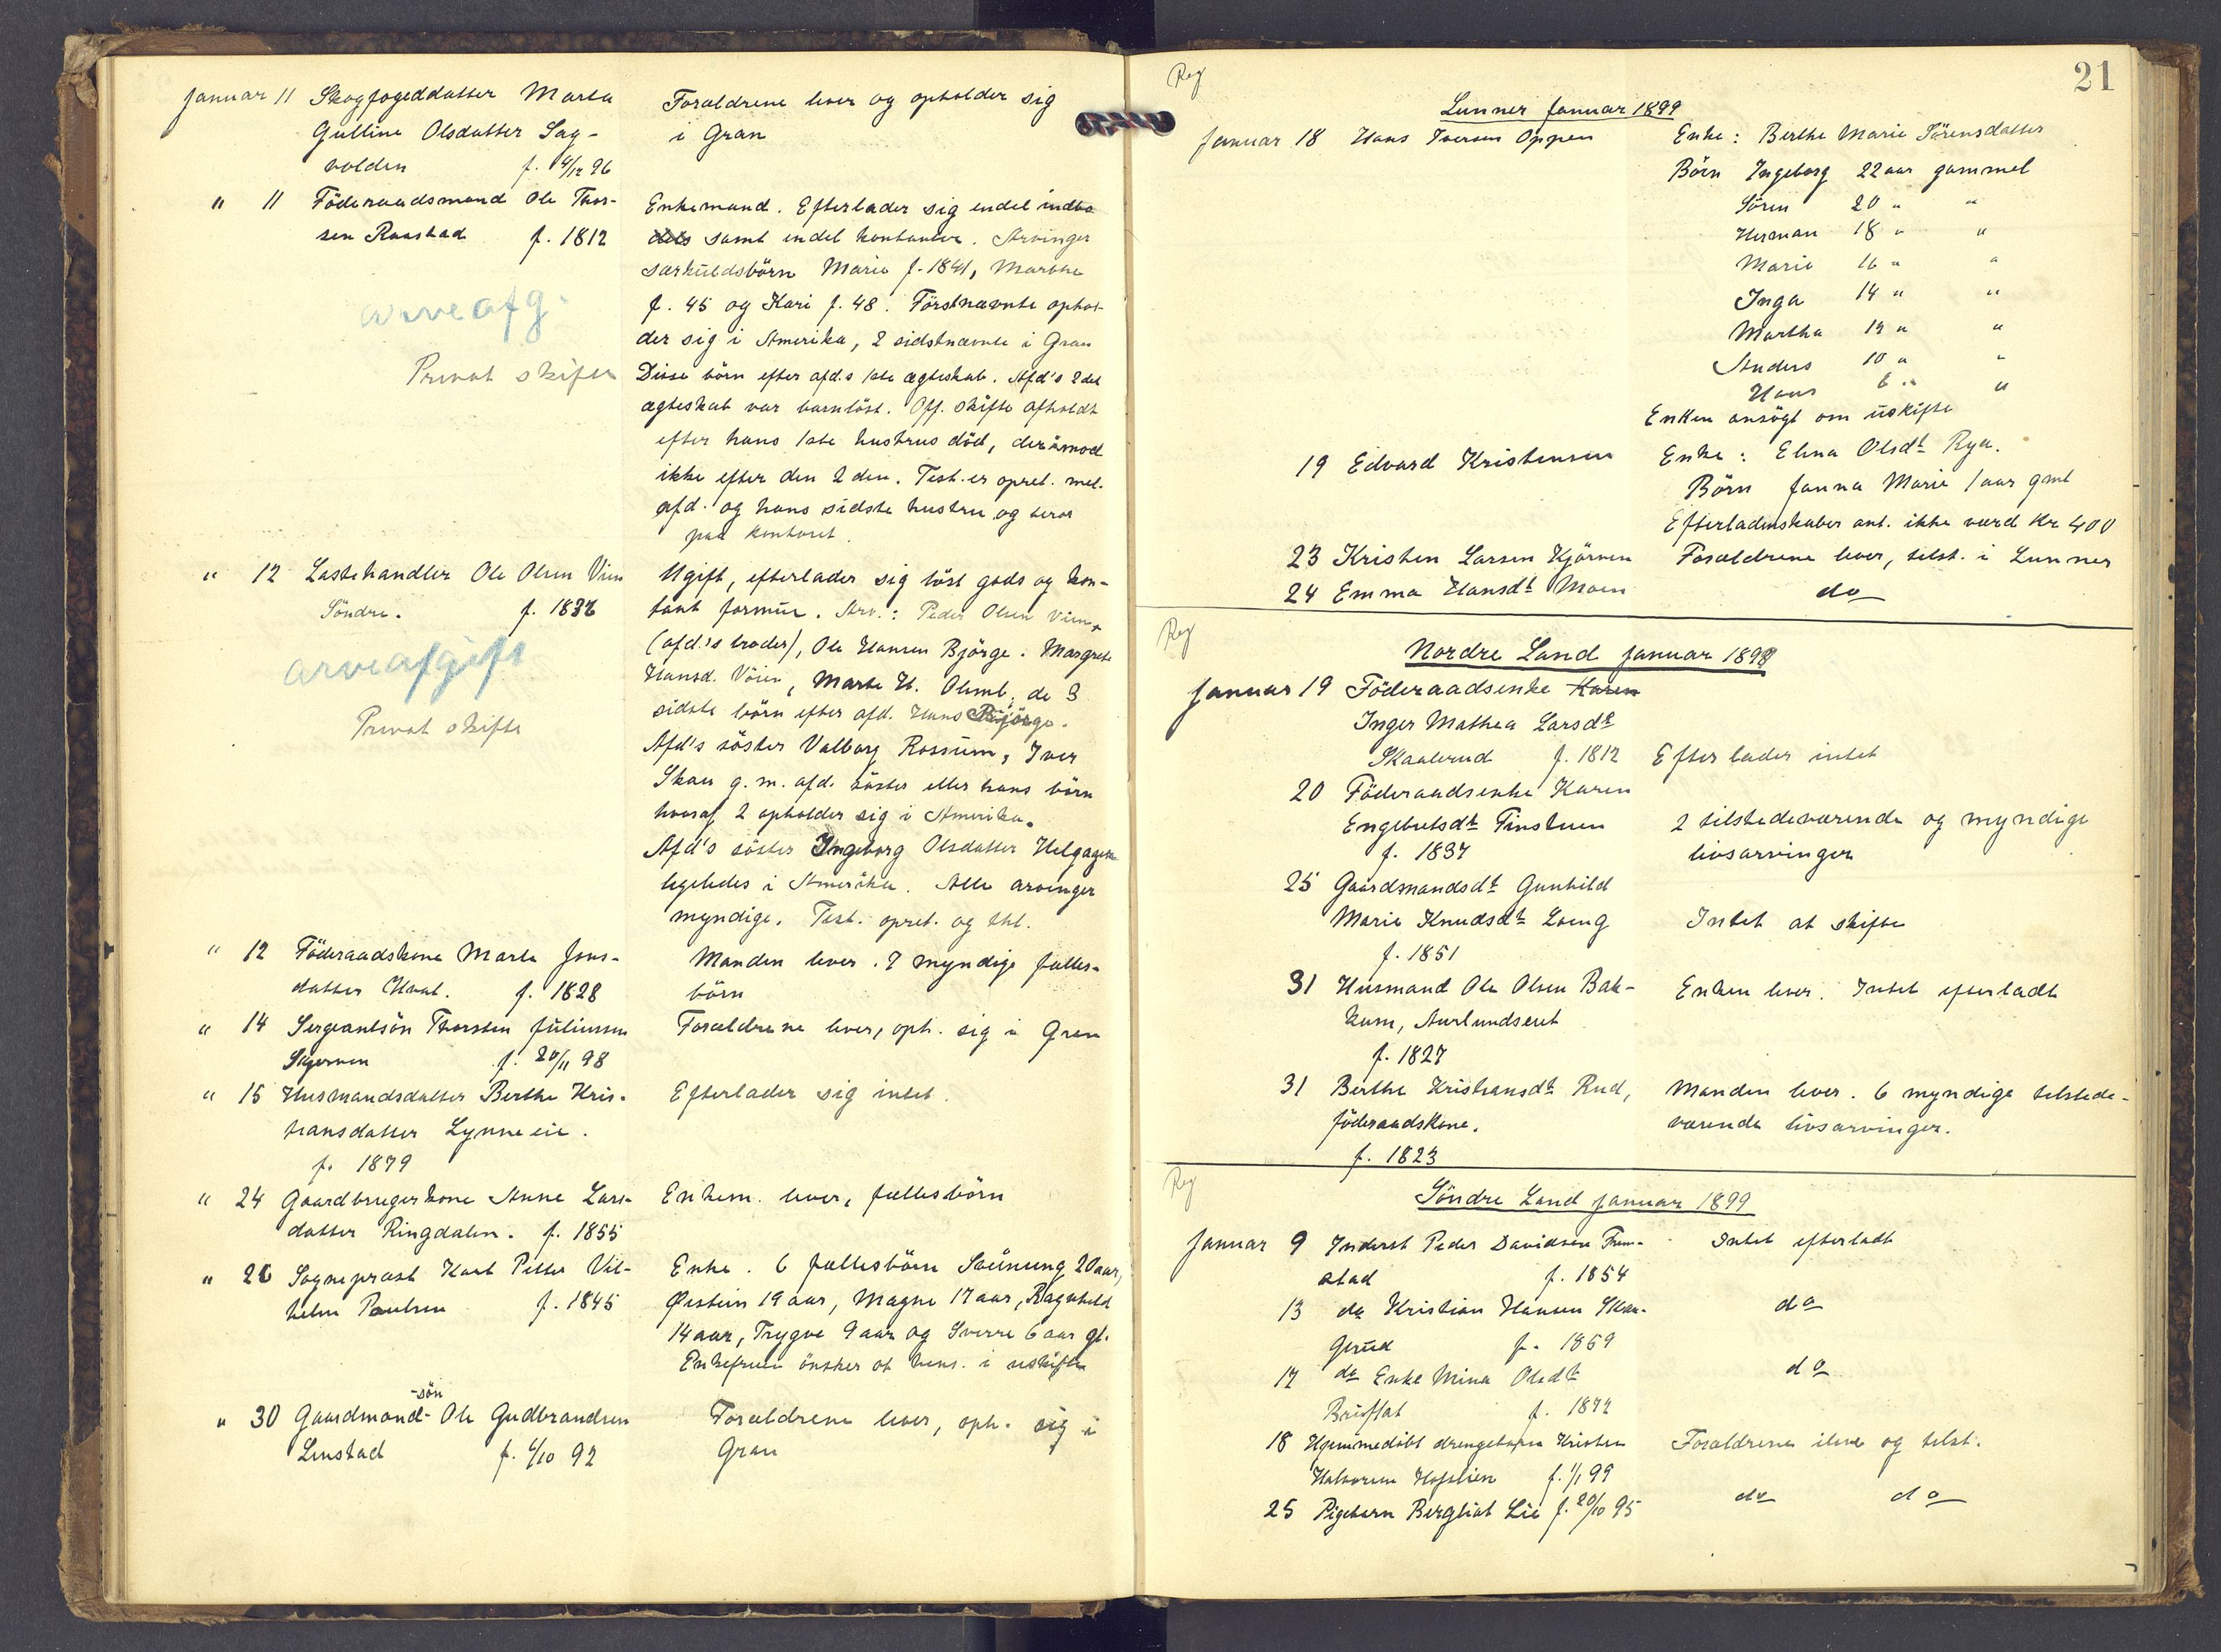 Januar 11 Skogfogeddatter Marta
Gulline Olsdatter Sag-
volden f. 4/12 96
Forældrene lever og opholder sig
i Gran
" 11 Föderaadsmand Ole Thor-
sen Raastad f. 1812
arveafg.
Privat skifte
Enkemand. Efterlader sig endel indbo
dels samt endel kontanter. Arvinger
særkuldsbörn Marie f. 1841, Marthe
f. 45 og Kari f. 48. Förstnævnte ophol-
der sig i Amerika, 2 sidstnævnte i Gran
Disse börn efter afd.s 1ste ægteskab. Afd's 2det
ægteskab var barnlöst. Off. skifte afholdt
efter hans 1ste hustrus död, derimod
ikke efter den 2den. Test. er opret. mel.
afd. og hans sidste hustru og beror
paa kontoret.
" 12 Lastehandler Ole Olsen Vien
Söndre. f. 1832
arveafgift
Privat skifte
Ugift, efterlader sig löst gods og kon-
tant formue. Arv.: Peder Olsen Vien,
(afd.'s broder), Ole Hansen Björge. Margrete
Hansd. Vöien, Marte H. Olimb, de 3
sidste börn efter afd. Hans Björge.
Afd's söster Valborg Rossum, Iver
Skau g. m. afd. söster eller hans börn
hvoraf 2 opholder sig i Amerika.
Afd's söster Ingeborg Olsdatter Helgagen
ligeledes i Amerika. Alle arvinger
myndige. Test. opret. og thl.
" 12 Föderaadskone Marte Jons-
datter Hval. f. 1828
Manden lever. 7 myndige fælles-
börn
" 14 Sergeantsön Thorsten Juliussen
Skjerven f. 20/11 98
Forældrene lever, oph. sig i Gran
" 15 Husmandsdatter Berthe Kris-
tiansdatter Lynneeie.
f. 1879
Efterlader sig intet.
" 24 Gaardbrugerkone Anne Lars-
datter Ringdalen. f. 1855
Enkem. lever, fællesbörn
" 26 Sogneprest Karl Petter Vil-
helm Paulsen f. 1845
Enke. 6 fællesbörn Sveinung 20 aar,
Øistein 19 aar, Magne 17 aar, Ragnhild
14 aar, Trygve 9 aar og Sverre 6 aar gl.
Enkefruen önsker at hens. i uskifte
-sön
" 30 Gaardmand- Ole Gudbrandsen
Linstad f. 4/10 92
Forældrene lever, oph. sig i
Gran
21
Reg
Lunner Januar 1899
Januar 18 Hans Iversen Oppen
Enke: Berthe Marie Sörensdatter
Börn Ingeborg 22 aar gammel
Sören 20 " "
Herman 18 " "
Marie 16 " "
Inga 14 " "
Martha 12 " "
Anders 10 " "
Hans 6 " "
Enken ansögt om uskifte
19 Edvard Kristensen
Enke: Elina Olsdt Rya.
Börn Janna Marie 1 aar gml
Efterladenskaber ant. ikke værd Kr 400
23 Kristen Larsen Kjörven Forældrene lever, tilst. i Lunner
24 Emma Hansdt Moen do
Reg
Nordre Land Januar 1899
Januar 19 Föderaadsenke Karen
Inger Mathea Larsdt
Skaalerud f. 1812 Efterlader intet
20 Föderaadsenke Karen
Engebretsdt Finstuen
f. 1837
2 tilstedeværende og myndige
livsarvinger
25 Gaardmandsdt Gunhild
Marie Knudsdt Loeng
f. 1851
Intet at skifte
31 Husmand Ole Olsen Bak-
kum, Aurlundseiet
f. 1827
Enken lever. Intet efterladt
31 Berthe Kristiansdt Rud,
föderaadskone.
f. 1823
Manden lever. 6 myndige tilstede-
værende livsarvinger.
Reg
Söndre Land Januar 1899
Januar 9 Inderst Peder Davidsen Frem-
stad f. 1854
Intet efterladt
13 do Kristian Hansen Skau-
gerud f. 1869
do
17 do Enke Mina Olsdt
Bruflat f. 1872
do
18 Hjemmedöbt drengebarn Kristen
Halvorsen Hofslien f. 1/1 99
Forældrene ilive og tilst.
25 Pigebarn Bergliot Lie f. 20/10 95
do do